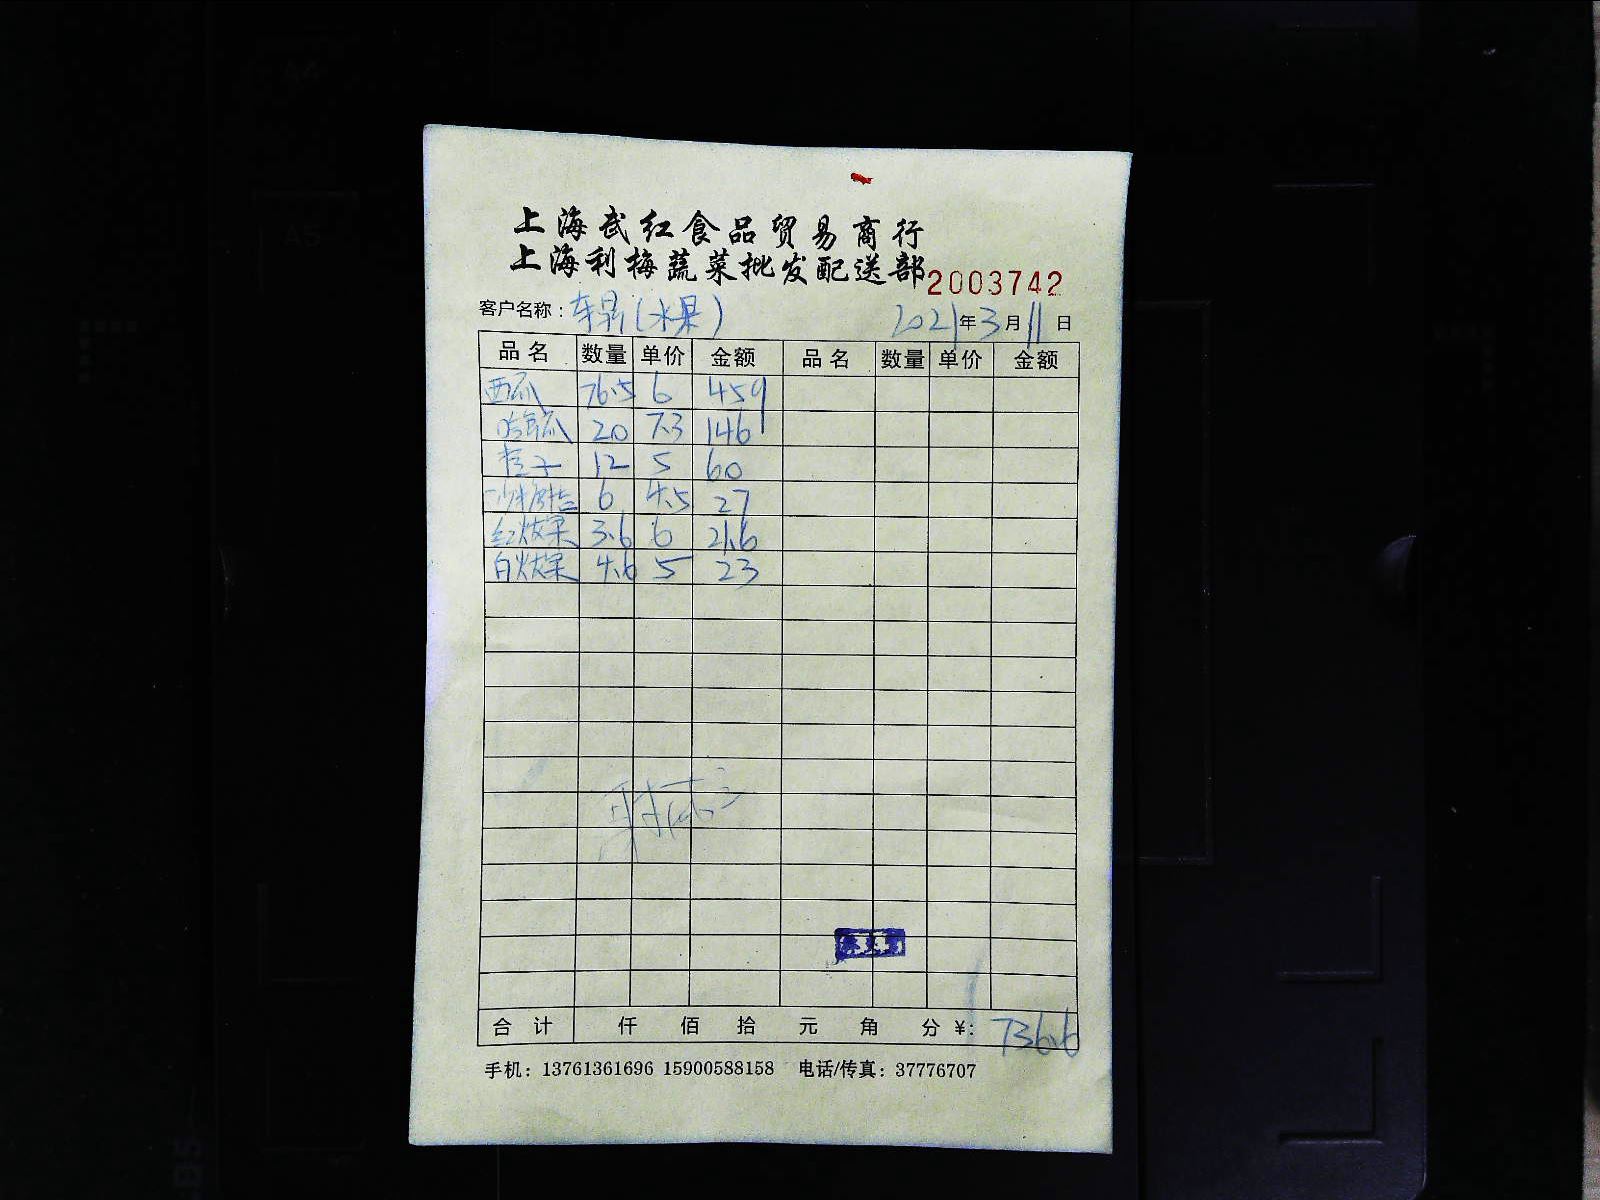 上海武红食品贸易商行
上海利梅蔬菜批发配送部 2003742
客户名称：车鼎(水果) 2021年3月11日
品名 数量 单价 金额 品名 数量 单价 金额
西瓜 76.5 6 459
哈密瓜 20 7.3 146
橙子 12 5 60
沙糖桔 6 4.5 27
红火龙果 3.6 6 21.6
白火龙果 4.6 5 23
合计 仟 佰 拾 元 角 分 ¥: 736.6
手机：13761361696 15900588158 电话/传真：37776707